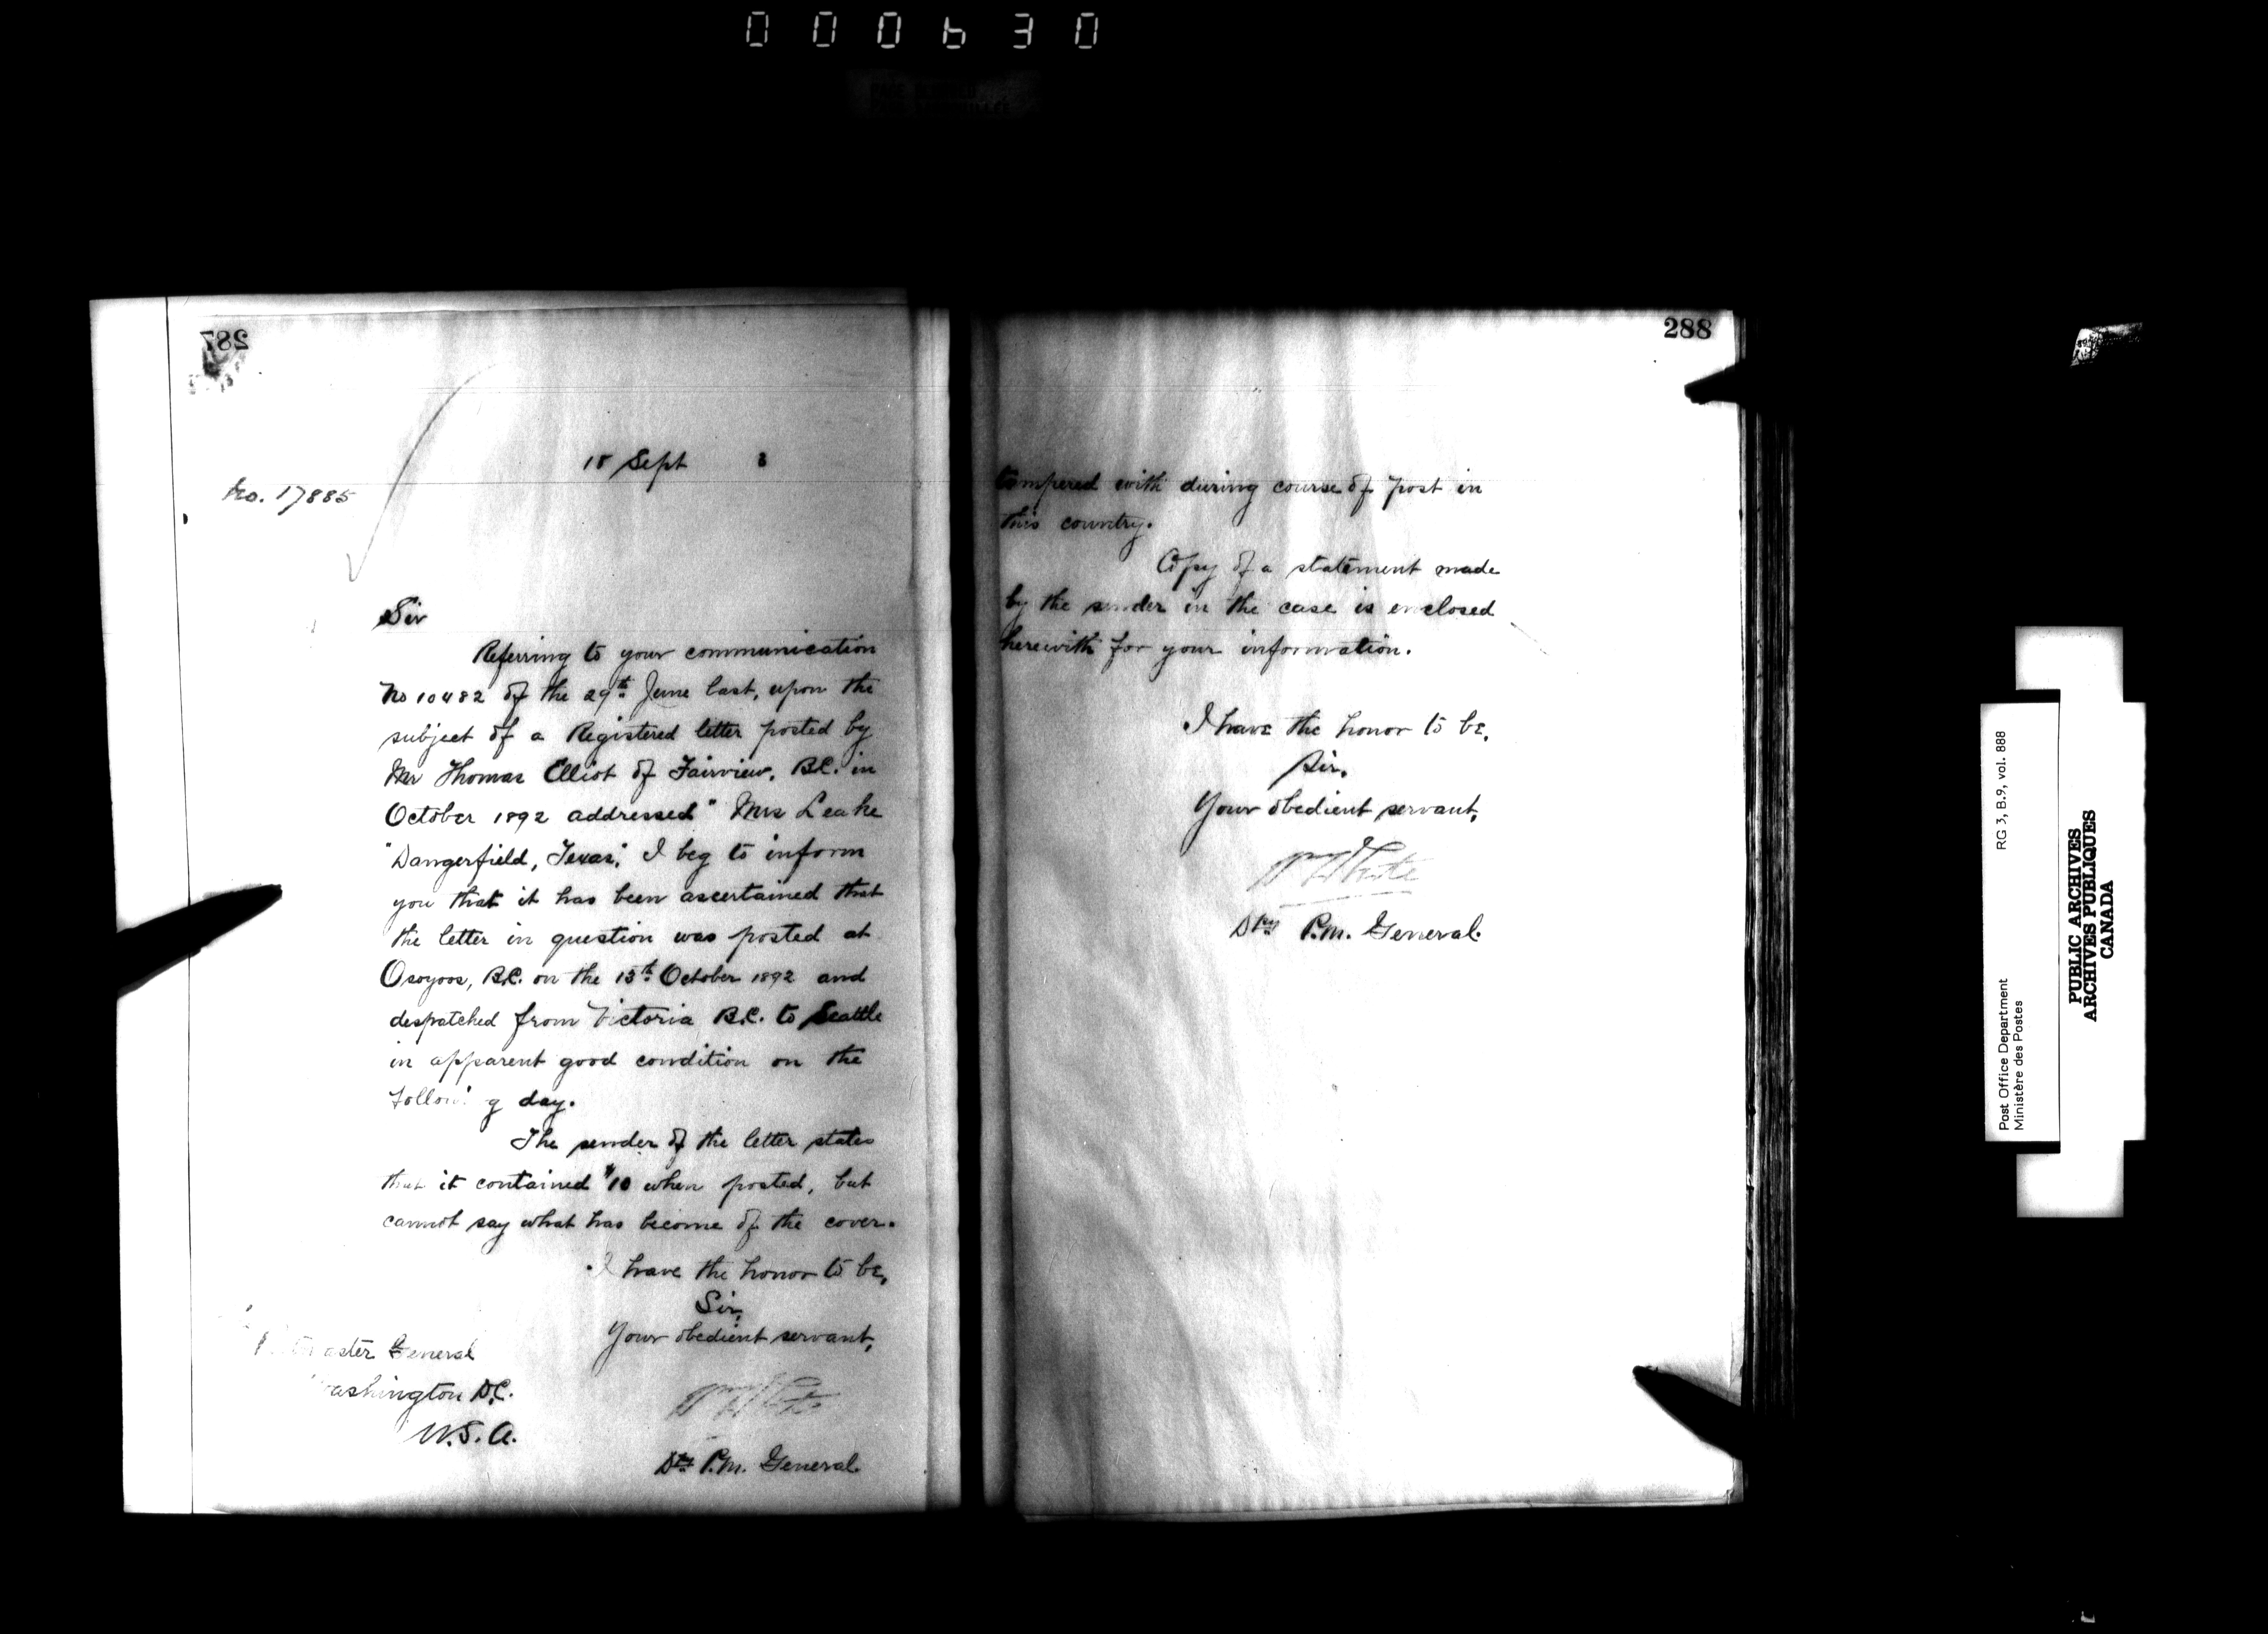 000630
287
18 Sept 3
No. 17885
Sir
Referring to your communication
No 10482 of the 29th June last, upon the
subject of a Registered letter posted by
Mr Thomas Elliot of Fairview, B.C. in
October 1892 addressed " Mrs Leake
"Dangerfield, Texas", I beg to inform
you that it has been ascertained that
the letter in question was posted at
Osoyoos, B.C. on the 13th October 1892 and
despatched from Victoria B.C. to Seattle
in apparent good condition on the
following day.
The sender of the letter states
that it contained $10 when posted, but
cannot say what has become of the cover.
I have the honor to be,
Sir,
Your obedient servant,
Postmaster General
Washington D.C.
U.S.A.
Wm White
Dty P.M. General.
288
tampered with during course of post in
this country.
Copy of a statement made
by the sender in the case is enclosed
herewith for your information.
I have the honor to be,
Sir,
Your obedient servant,
Wm White
Dpy P.M. General.
Post Office Department RG 3, B.9, vol. 888
Ministère des Postes
PUBLIC ARCHIVES
ARCHIVES PUBLIQUES
CANADA